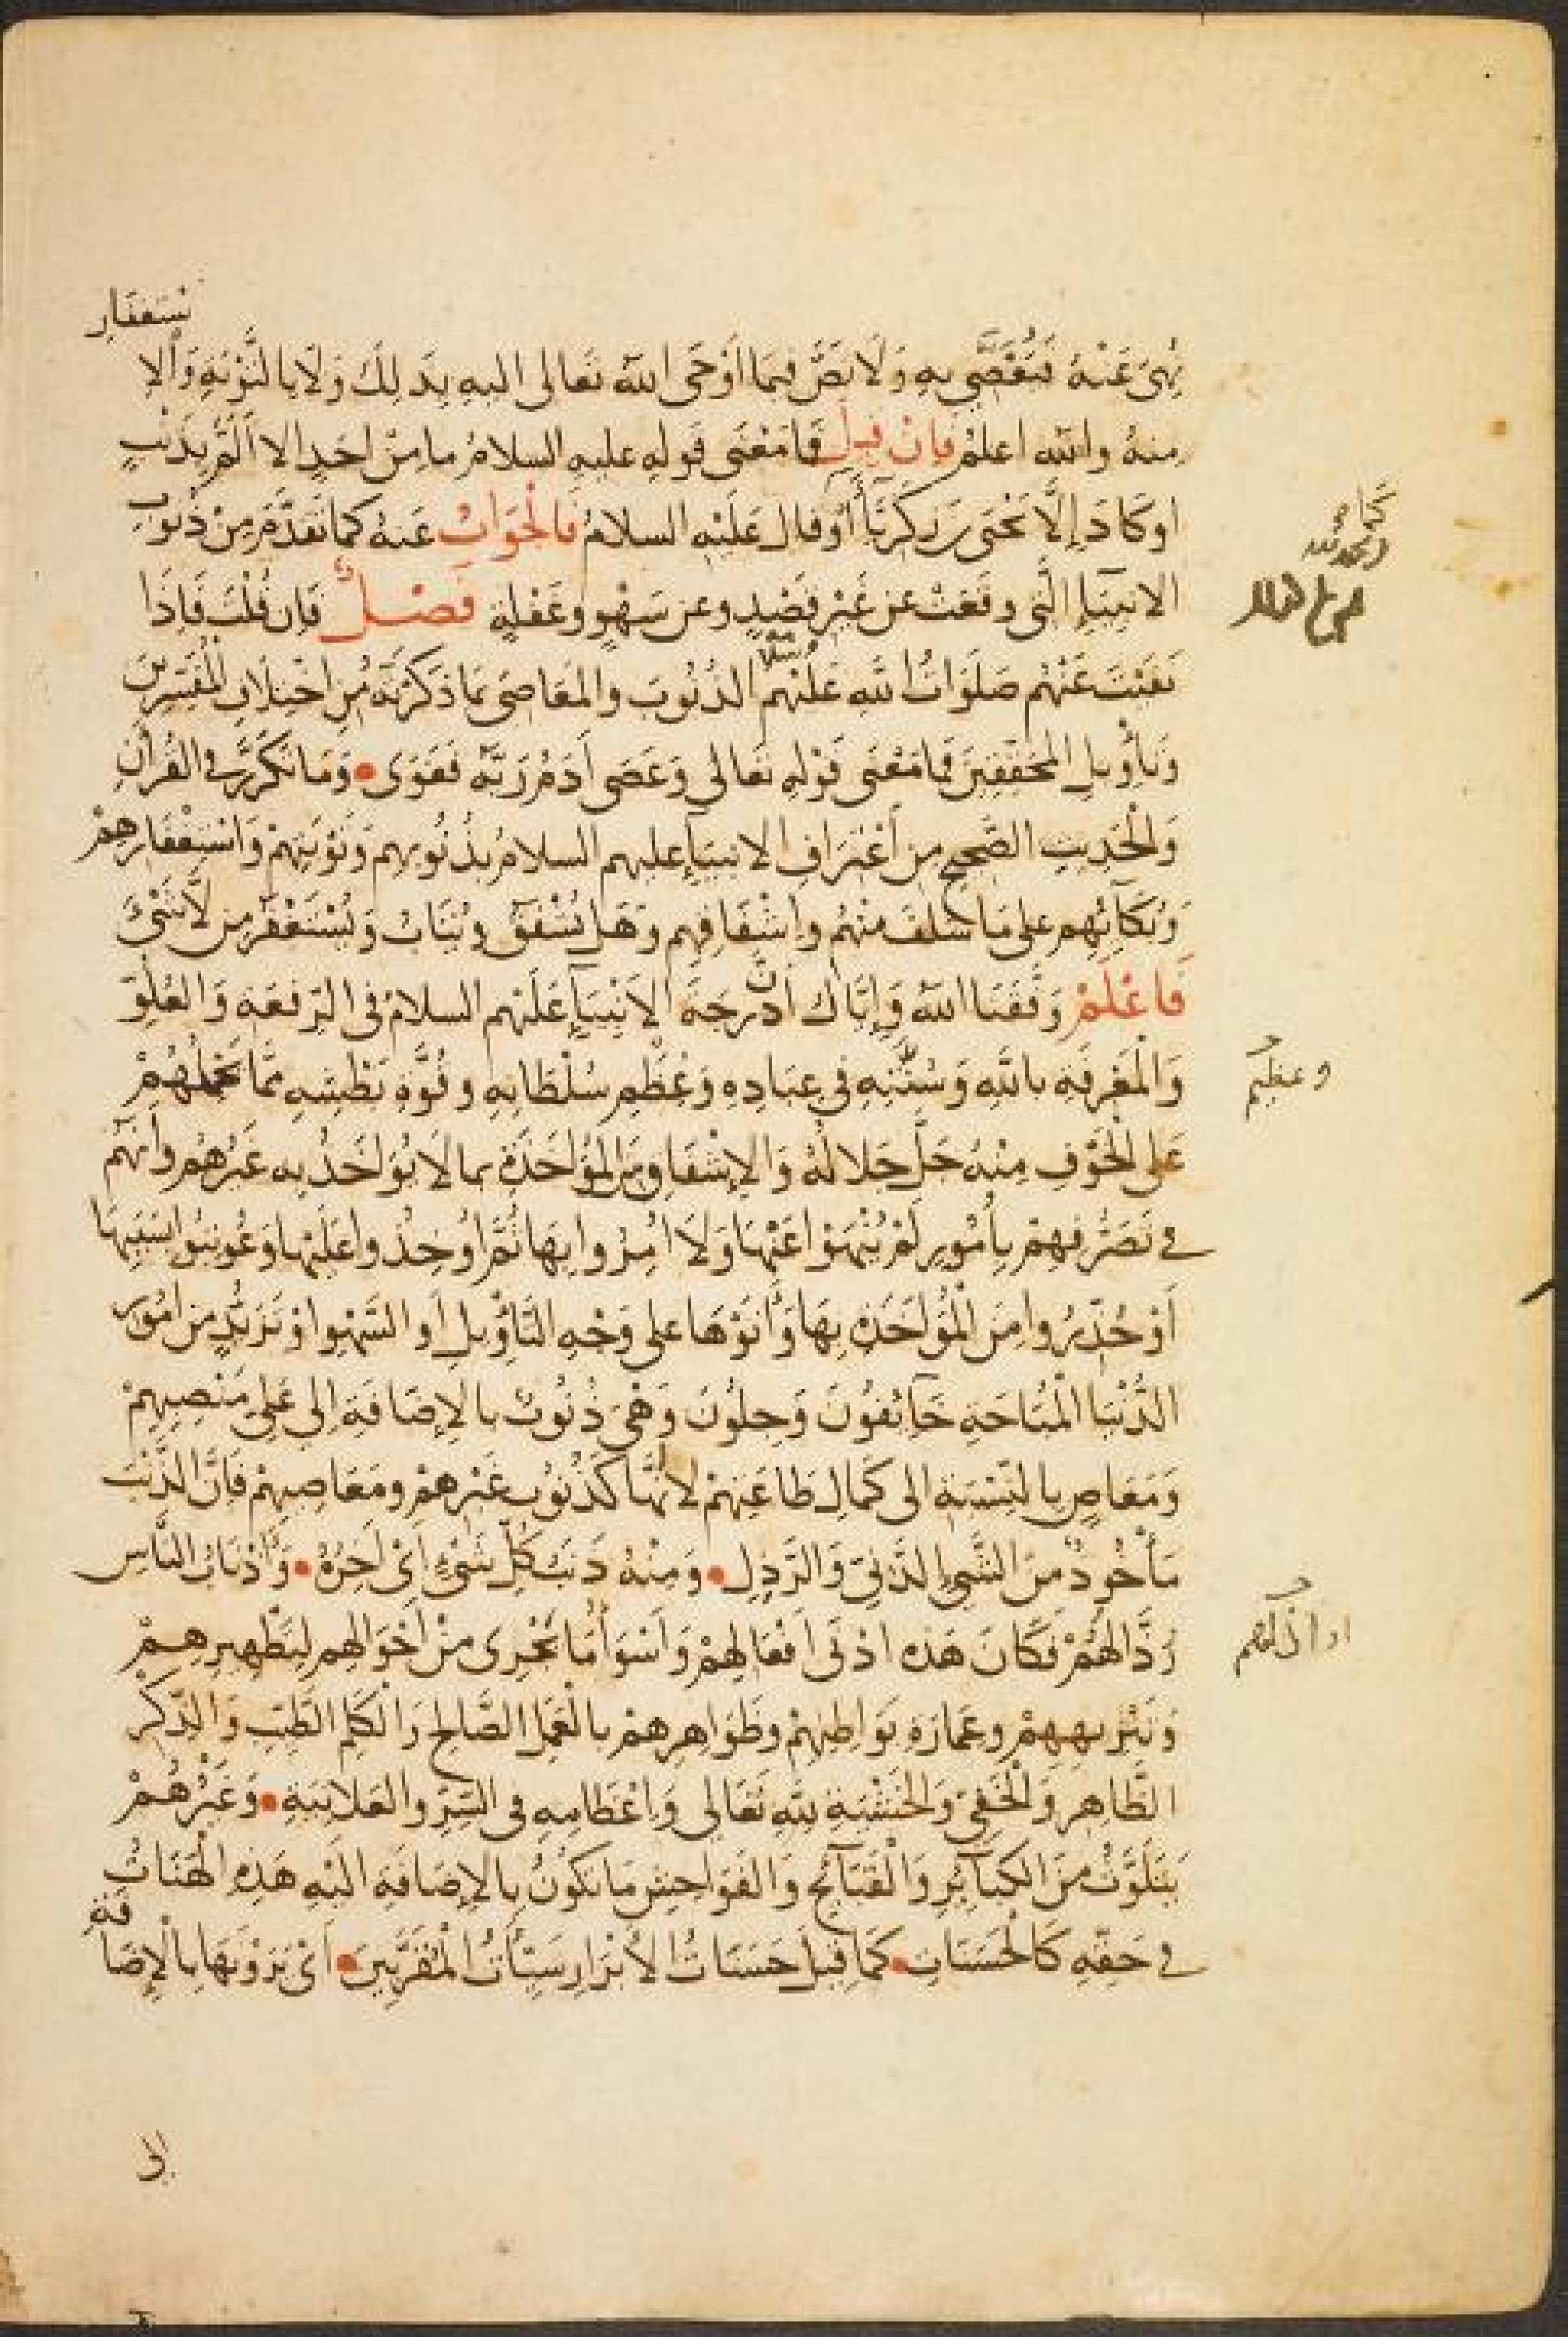 ستغفار
نُهِىَ عَنْهُ فَيُقَضَّى بِهِ وَلَا نَصَّ فِيمَا أَوْحَى اللهُ تَعالى اليهِ بِذَلِكَ وَلَا بِالتَّوْبَةِ وَالا
مِنهُ والله اعلمُ فَإِنْ قِيلَ فَمَا مَعْنَى قولهِ عليهِ السلامُ ما مِنْ احَدٍ الا اَلَمَّ بِذَنْبٍ
اوكَادَ إِلَّا يَحْيَى بن زَكَرِيَّا أَوْ قال عَلَيْهِ السلامُ فَالْجَوَابُ عَنهُ كما تَقَدَّمَ مِنْ ذُنُوبِ
الانبِيَاءِ الَّتِى وقَعَتْ عن غَيْرِ قَصْدٍ وعن سَهْوٍ وغَفْلَةٍ فَصْلٌ فَإِن قُلْتَ فَإِذَا
نَفَيْتَ عَنْهُم صَلَوَاتُ اللهِ عَلَيْهِم الذُنُوبَ والمَعَاصِىَ بمَا ذَكَرْتَهُ مِنِ اخْتِلَافِ الْمُفَسِّرِينَ
وَتَأْوِيلِ المُحَقِّقِينَ فَمَا مَعْنَى قَوْلِهِ تَعالى وَعَصَى اَدَمُ رَبَّهُ فَغَوَى • وَمَا تَكَرَّرَ فى الْقُرْآنِ
وَالْحَدِيثِ الصَّحِيحِ مِن أَعْتِرَافِ الانبِيَآءِ عليهم السلامُ بِذُنُوبِهِم وَتَوْبَتِهِمْ وَاسْتِغْفَارِهِمْ
وَبُكَآئِهِم على مَا سَلَفَ مِنْهُم واِشْفَاقِهِم وَهَل يُشْفَقُ وَيُتَابُ وَيُسْتَغْفَرُ مِن لَا شَىْءَ
فَاعْلَمْ وَفَّقَنَا اللهُ وَإِيَّاكَ أَنَّ دَرَجَةَ الاَنْبِيَآءِ عَلَيْهم السلامُ فى الرِّفعَةِ وَالعُلُوِّ
وَالْمَعْرِفَةِ بِاللهِ وَسُنَّتِهِ فى عِبَادِهِ وَعِظَمِ سُلْطَانِهِ وقُوَّةِ بَطْشِهِ مِمَّا يَحْمِلُهُمْ
عَلَى الْخَوْفِ مِنْهُ جَلَّ جَلَالُهُ وَالإِشْفَاقِ مِنَ الْمُؤَاخَذَةِ بما لَا يُؤَاخَذُ بِهِ غَيْرُهُم وأَنَّهُم
فى تَصَرُّفِهِمْ بِأُمُورٍ لَمْ يُنْهَوْا عَنْهَا وَلَا اُمِرُوا بِهَا ثُمَّ اُوخِذُوا عَلَيْهَا وَعُوتِبُوا بِسَبَبِهَا
أَوْ حُذِّرُوا مِنَ الْمُؤَاخَذَةِ بِهَا وَأَتَوْهَا على وَجْهِ التَّأْوِيلِ أَو السَّهْوِ اوْ تَزَيُّدٍ مِن اُمُورِ
الدُّنْيَا الْمُبَاحَةِ خَآئِفُونَ وَجِلُونَ وَهْىَ ذُنُوبٌ بالإِضَافَةِ إلى عَلِىِّ مَنْصِبِهِمْ
وَمَعَاصٍ بِالنِّسْبَةِ الى كَمَالِ طَاعَتِهِمْ لا أنَّهَا كَذُنُوبِ غَيْرِهِمْ وَمَعَاصِيهِمْ فَإِنَّ الذَّنْبَ
مَأْخُوذٌ مِنَ الشَّىءِ الدَّنِىِّ وَالرَّذِلِ • وَمِنْهُ ذَنَبُ كُلِّ شَىْءٍ اَىْ آخِرُهُ • وَأَذْنَابُ النَّاسِ
رُذَّالُهُمْ فَكَانَ هَذِهِ ادْنَى أَفْعَالِهِمْ وَاَسْوَأَ مَا يَجْرِى مِنْ اَحْوَالِهِم لِتَطْهِيرِهِمْ
وَتَنْزِيهِهِمْ وعِمَارَةِ بَوَاطِنِهِمْ وَظَوَاهِرِهِمْ بالْعَمَلِ الصَّالِحِ وَالْكَلِمِ الطَّيِّبِ وَالذِّكْرِ
الظَّاهِرِ وَالْخَفِىِّ وَالْخَشْيَةِ لِلهِ تَعَالى وَاِعْظَامِهِ فى السِّرِّ والعَلَانِيَةِ • وَغَيْرُهُمْ
يَتَلَوَّثُ مِنَ الكَبَآئِرِ وَالْقَبَآئِحِ وَالفَوَاحِشِ مَا تَكُونُ بِالإِضَافَةِ الَيْهِ هَذِهِ الْهَنَاتُ
فى حَقِّهِ كَالْحَسَنَاتِ • كَمَا قِيلَ حَسَنَاتُ الأَبْرَارِ سَيِّئَاتُ الْمُقَرَّبِينَ • اَىْ يَرَوْنَهَا بِالْإِضَافَةِ
الى
وعظيم
اراذلهم